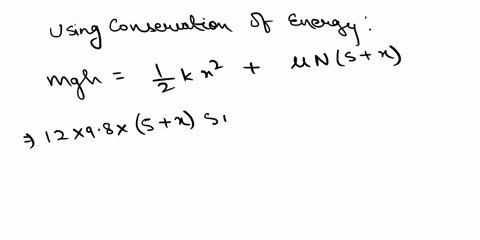 Using Conservation of Energy:
mgh = 1/2 k x² + μN(5+x)
⇒ 12×9.8×(5+x) Si